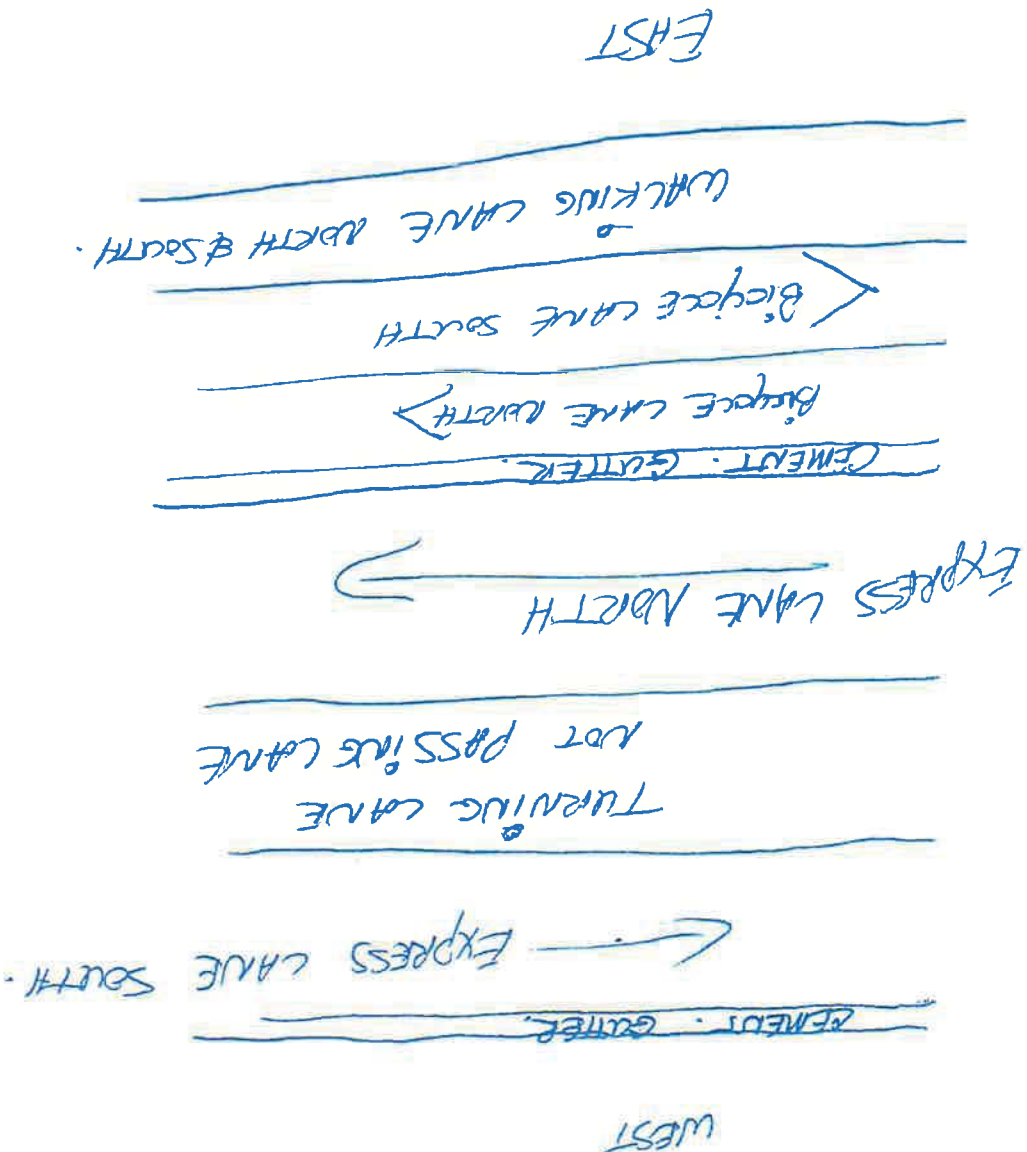 WEST
CEMENT. GUTTER.
EXPRESS LANE SOUTH.
TURNING LANE
NOT PASSING LANE
EXPRESS LANE NORTH
CEMENT. GUTTER.
BICYCLE LANE NORTH
BICYCLE LANE SOUTH
WALKING LANE NORTH & SOUTH.
EAST